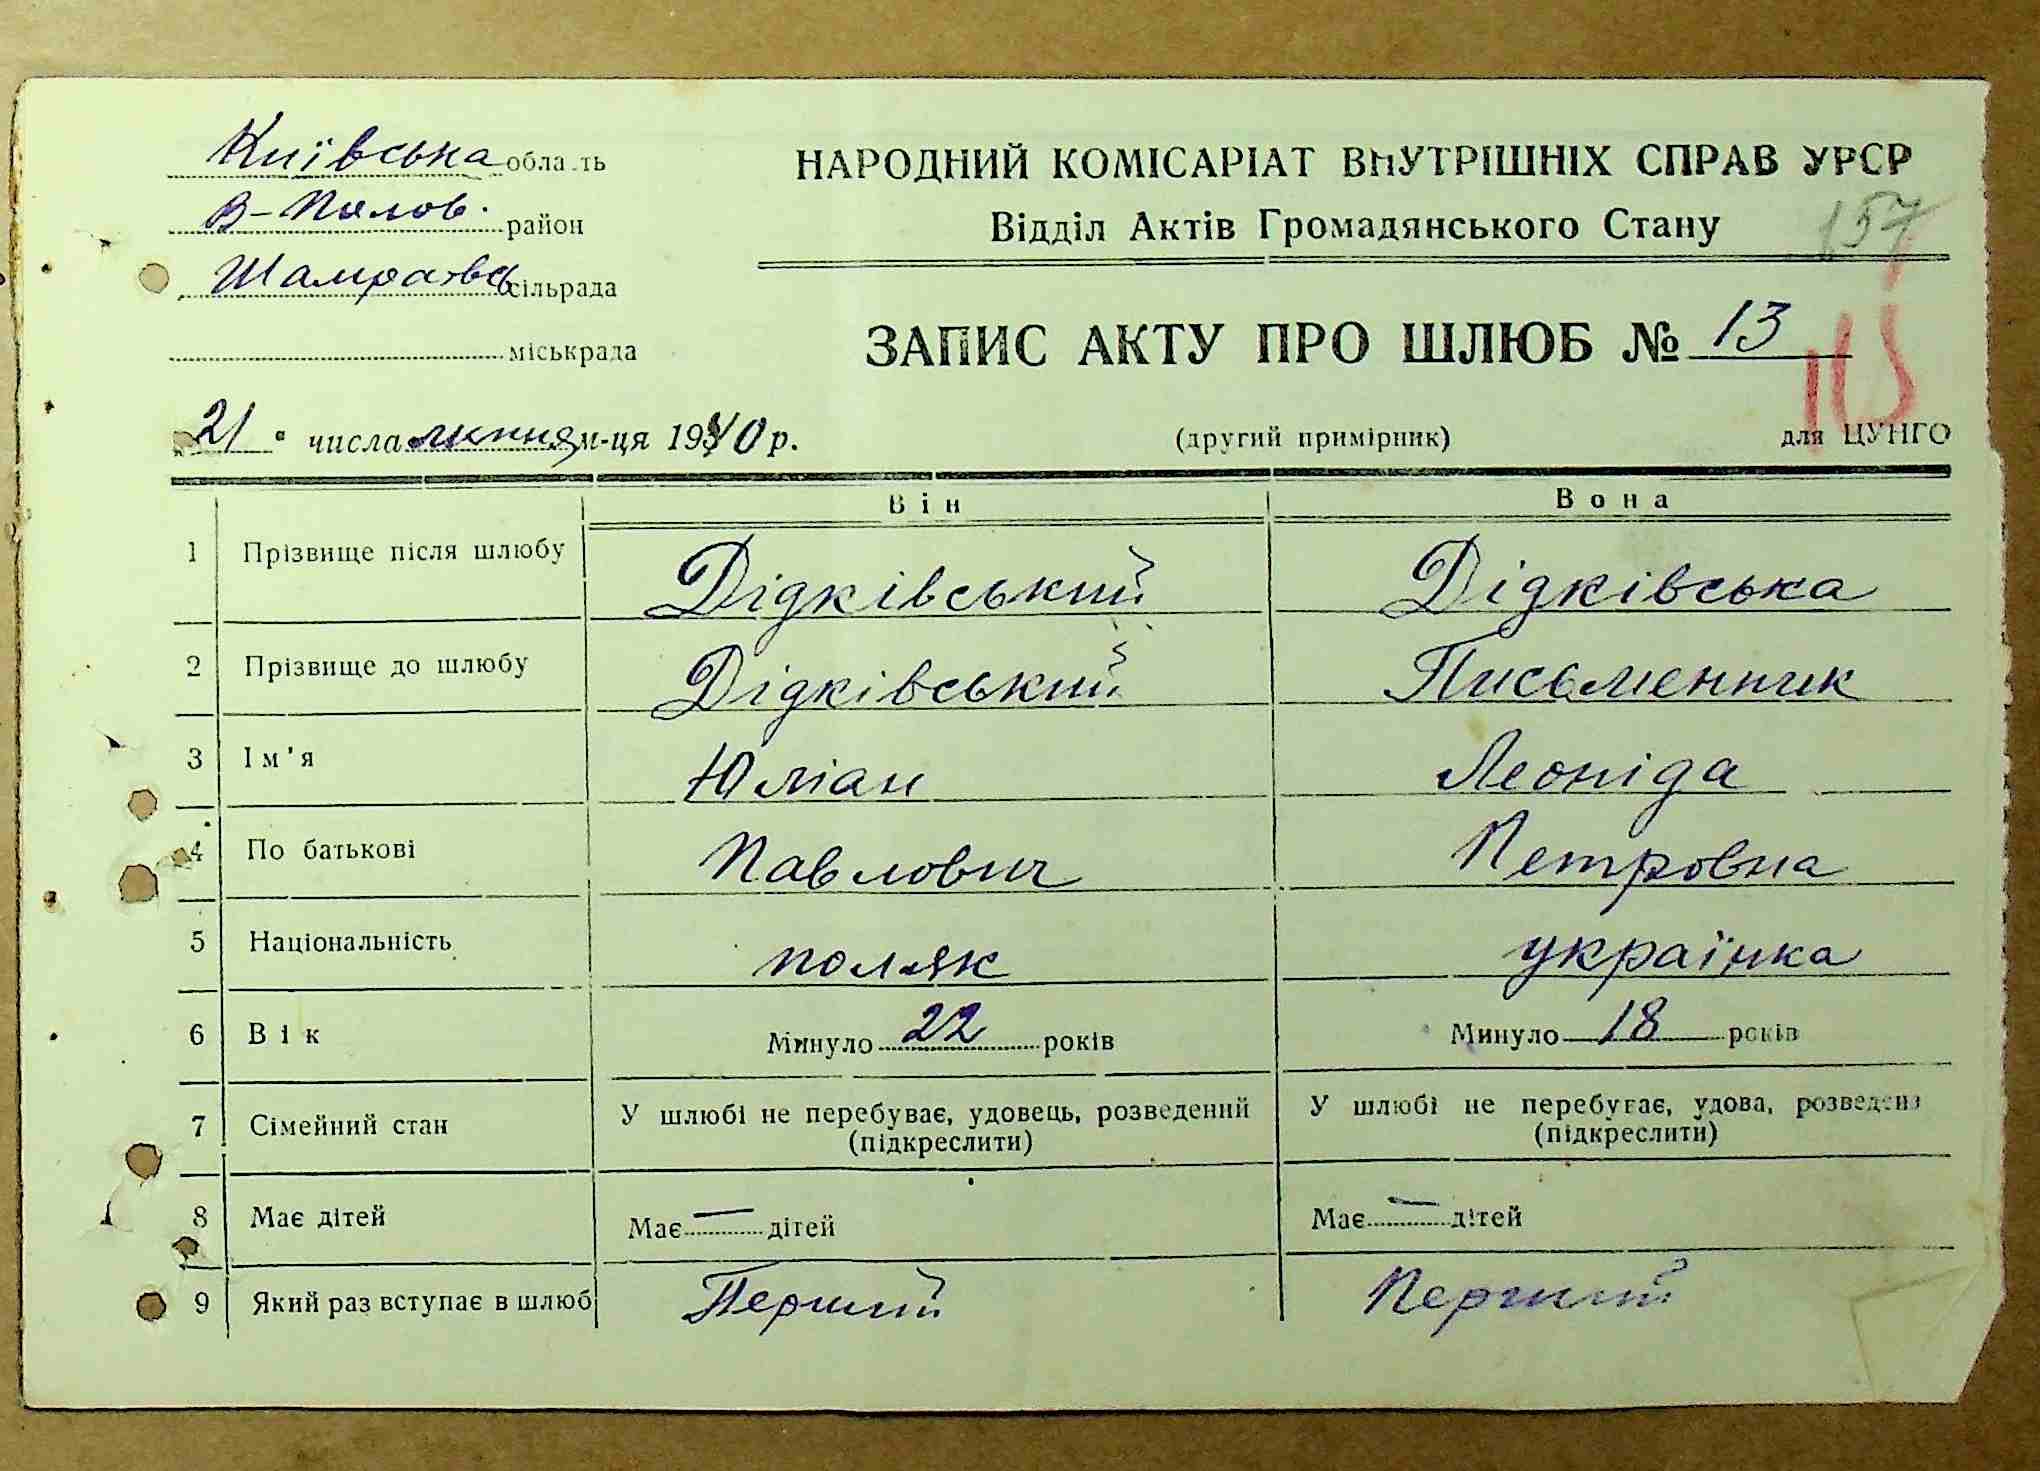 Київська область
В-Полов. район
Шамраївсь сільрада
міськрада
НАРОДНИЙ КОМІСАРІАТ ВНУТРІШНІХ СПРАВ УРСР
Відділ Актів Громадянського Стану
157
ЗАПИС АКТУ ПРО ШЛЮБ № 13
21 числа липня м-ця 1940 р.
(другий примірник)
для ЦУНГО
Він Вона
1 Прізвище після шлюбу Дідківський Дідківська
2 Прізвище до шлюбу Дідківський Письменник
3 Ім'я Юліан Леоніда
4 По батькові Павлович Петровна
5 Національність поляк українка
6 Вік Минуло 22 років Минуло 18 років
7 Сімейний стан У шлюбі не перебуває, удовець, розведений У шлюбі не перебуває, удова, розведена
(підкреслити) (підкреслити)
8 Має дітей Має — дітей Має — дітей
9 Який раз вступає в шлюб Перший Перший